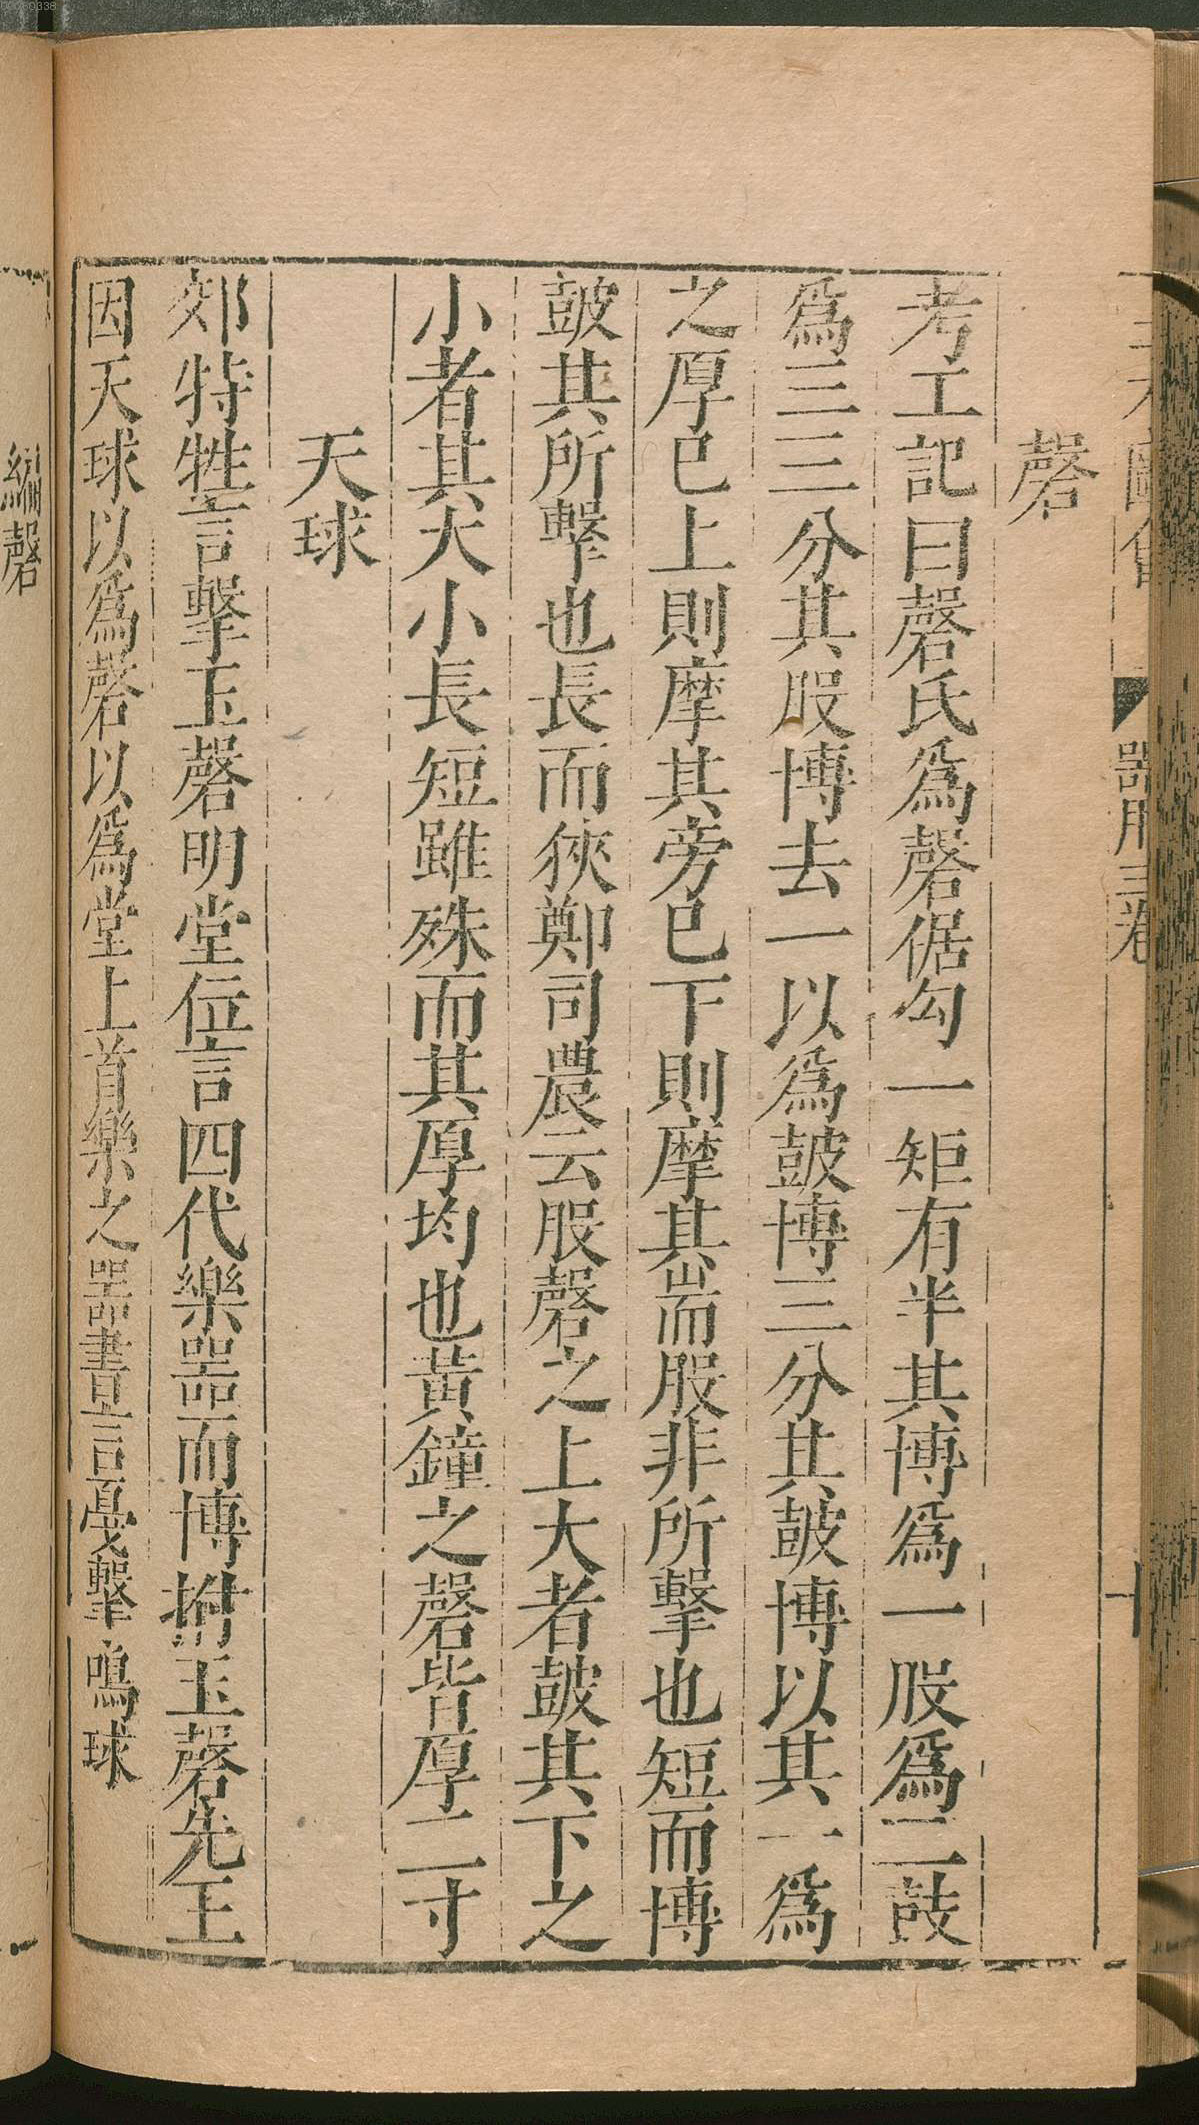 器用三卷
十
磬
考工記曰磬氏爲磬倨勾一矩有半其博爲一股爲二鼓
爲三三分其股博去一以爲皷博三分其皷博以其一爲
之厚已上則摩其旁已下則摩其耑股非所擊也短而博
皷其所擊也長而狹鄭司農云股磬之上大者皷其下之
小者其大小長短雖殊而其厚均也黃鐘之磬皆厚二寸
天球
郊特牲言擊玉磬明堂位言四代樂器而博拊玉磬先王
因天球以爲磬以爲堂上首樂之器書言戞擊鳴球
編磬
00080338